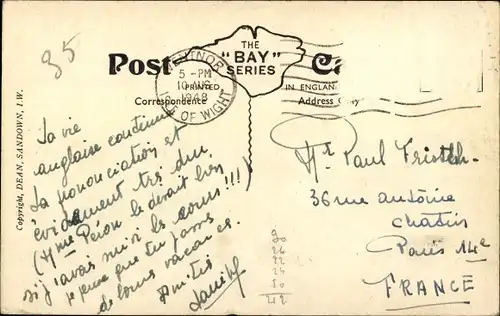 35
Post Ca
THE
"BAY"
SERIES
PRINTED IN ENGLAND
Correspondence
Address Only
VENTNOR
5 - PM
10 AUG
1948
ISLE OF WIGHT
Copyright, DEAN, SANDOWN, I.W.
La vie
anglaise continue
La prononciation et
évidement très dur
(Mme Péron le dirait bien
si j'avais suivi les cours!!!)
je pense que tu passes
de bonnes vacances.
Amitiés
Mr Paul
36 rue antoine
chatin
Paris 14e
FRANCE
20
26
22
24
50
212